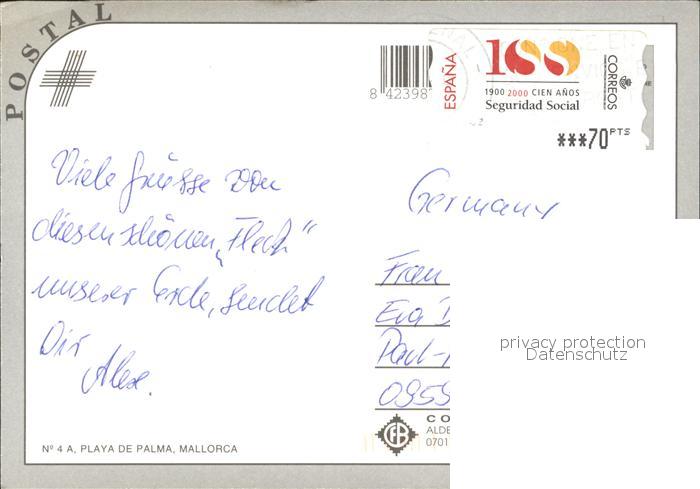 POSTAL
8 42398
ESPAÑA
100
1900 2000 CIEN AÑOS
Seguridad Social
CORREOS
***70 PTS
Viele Grüsse von
diesen schönen „Fleck“
unserer Erde, sendet
Dir
Alex.
Germany
Frau
Eva
Paul-
0959
CO
ALDE
0701
Nº 4 A, PLAYA DE PALMA, MALLORCA
privacy protection
Datenschutz